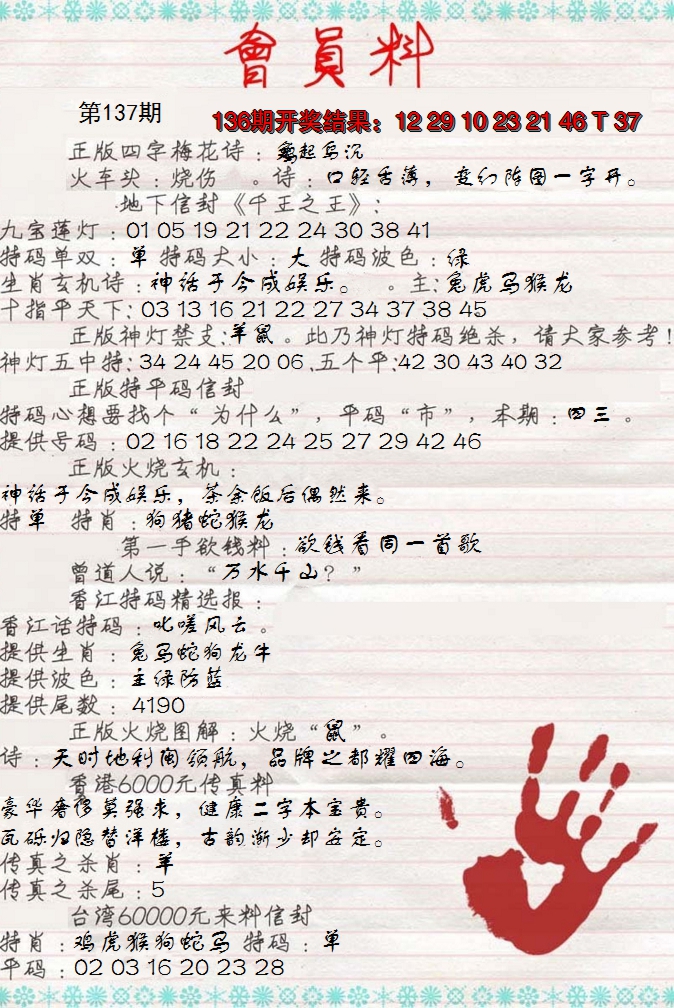 會員料
第137期
136期开奖结果：12 29 10 23 21 46 T 37
正版四字梅花诗：兔起乌沉
火车头：烧伤 。诗：口轻舌薄，变幻阵图一字开。
地下信封《千王之王》：
九宝莲灯：01 05 19 21 22 24 30 38 41
特码单双：单 特码大小：大 特码波色：绿
生肖玄机诗：神话于今成娱乐。 。主：兔虎马猴龙
十指平天下：03 13 16 21 22 27 34 37 38 45
正版神灯禁支：羊鼠。此乃神灯特码绝杀，请大家参考！
神灯五中特：34 24 45 20 06.五个平：42 30 43 40 32
正版特平码信封
特码心想要找个“为什么”，平码“市”，本期：四三 。
提供号码：02 16 18 22 24 25 27 29 42 46
正版火烧玄机：
神话于今成娱乐，茶余饭后偶然来。
特单 特肖：狗猪蛇猴龙
第一手欲钱料：欲钱看同一首歌
曾道人说：“万水千山？”
香江特码精选报：
香江话特码：叱嗟风云。
提供生肖：兔马蛇狗龙牛
提供波色：主绿防蓝
提供尾数：4190
正版火烧图解：火烧“鼠”。
诗：天时地利闽领航，品牌之都耀四海。
香港6000元传真料
豪华奢侈莫强求，健康二字本宝贵。
瓦砾归隐替洋楼，古韵渐少却安定。
传真之杀肖：羊
传真之杀尾：5
台湾60000元来料信封
特肖：鸡虎猴狗蛇马 特码：单
平码：02 03 16 20 23 28